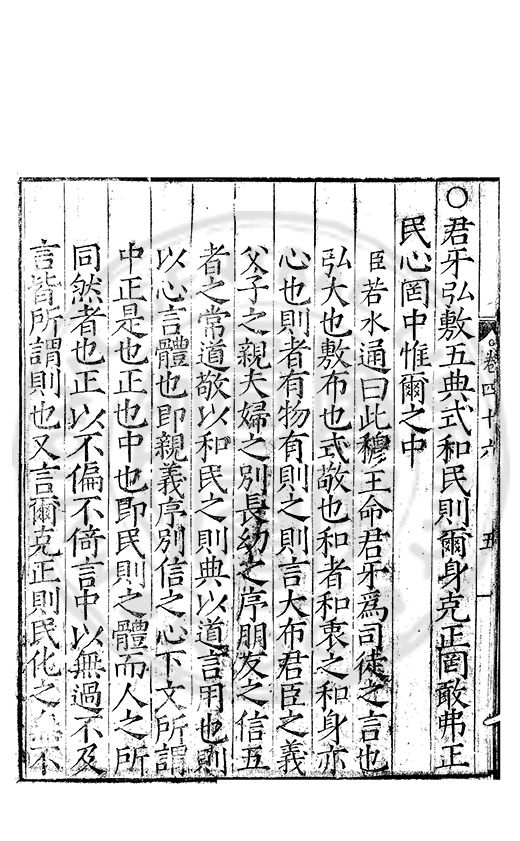 ○君牙弘敷五典式和民則爾身克正罔敢弗正
民心罔中惟爾之中
臣若水通曰此穆王命君牙爲司徒之言也
弘大也敷布也式敬也和者和衷之和身亦
心也則者有物有則之則言大布君臣之義
父子之親夫婦之別長幼之序朋友之信五
者之常道敬以和民之則典以道言用也則
以心言體也即親義序別信之心下文所謂
中正是也正也中也即民則之體而人之所
同然者也正以不偏不倚言中以無過不及
言皆所謂則也又言爾克正則民化之無不
卷四十六
五